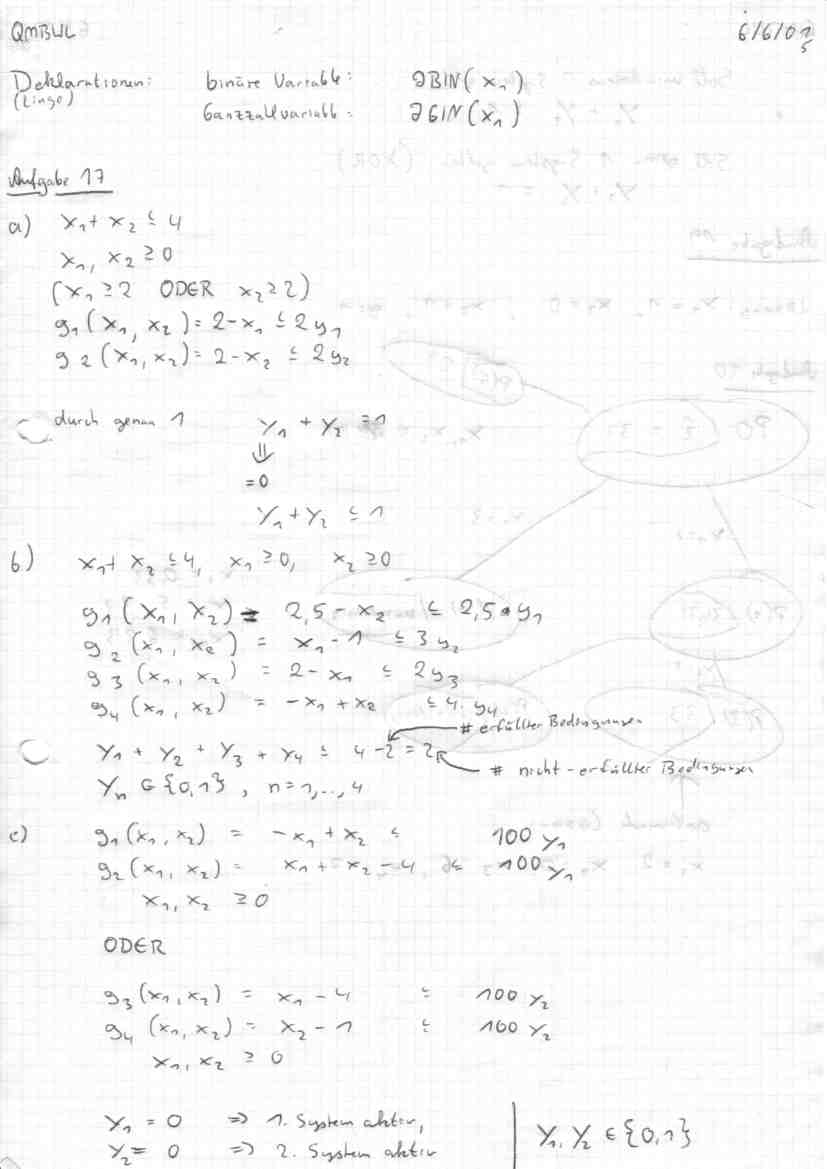 QMBWL 6/6/01
5
Deklarationen: binäre Variable: @BIN(x₁)
(Lingo) Ganzzahlvariable: @GIN(x₁)
Aufgabe 17
a) x₁+ x₂ ≤ 4
x₁, x₂ ≥ 0
(x₁ ≥ 2 ODER x₂ ≥ 2)
g₁(x₁, x₂) = 2-x₁ ≤ 2y₁
g₂(x₁, x₂) = 2-x₂ ≤ 2y₂
durch genau 1 y₁ + y₂ = 1
⇓
=0
y₁+y₂ ≤ 1
b) x₁+ x₂ ≤ 4, x₁ ≥ 0, x₂ ≥ 0
g₁(x₁, x₂) = 2,5 - x₂ ≤ 2,5 · y₁
g₂(x₁, x₂) = x₁ - 1 ≤ 3y₂
g₃(x₁, x₂) = 2-x₁ ≤ 2y₃
g₄(x₁, x₂) = -x₁ + x₂ ≤ 4 · y₄
# erfüllter Bedingungen
y₁ + y₂ + y₃ + y₄ ≤ 4 - 2 = 2
# nicht-erfüllter Bedingungen
yₙ ∈ {0,1}, n=1,..., 4
c) g₁(x₁, x₂) = -x₁ + x₂ ≤ 100 y₁
g₂(x₁, x₂) = x₁ + x₂ - 4 ≤ 100 y₁
x₁, x₂ ≥ 0
ODER
g₃(x₁, x₂) = x₁ - 4 ≤ 100 y₂
g₄(x₁, x₂) = x₂ - 1 ≤ 100 y₂
x₁, x₂ ≥ 0
y₁ = 0 ⇒ 1. System aktiv,
y₂ = 0 ⇒ 2. System aktiv
y₁, y₂ ∈ {0,1}